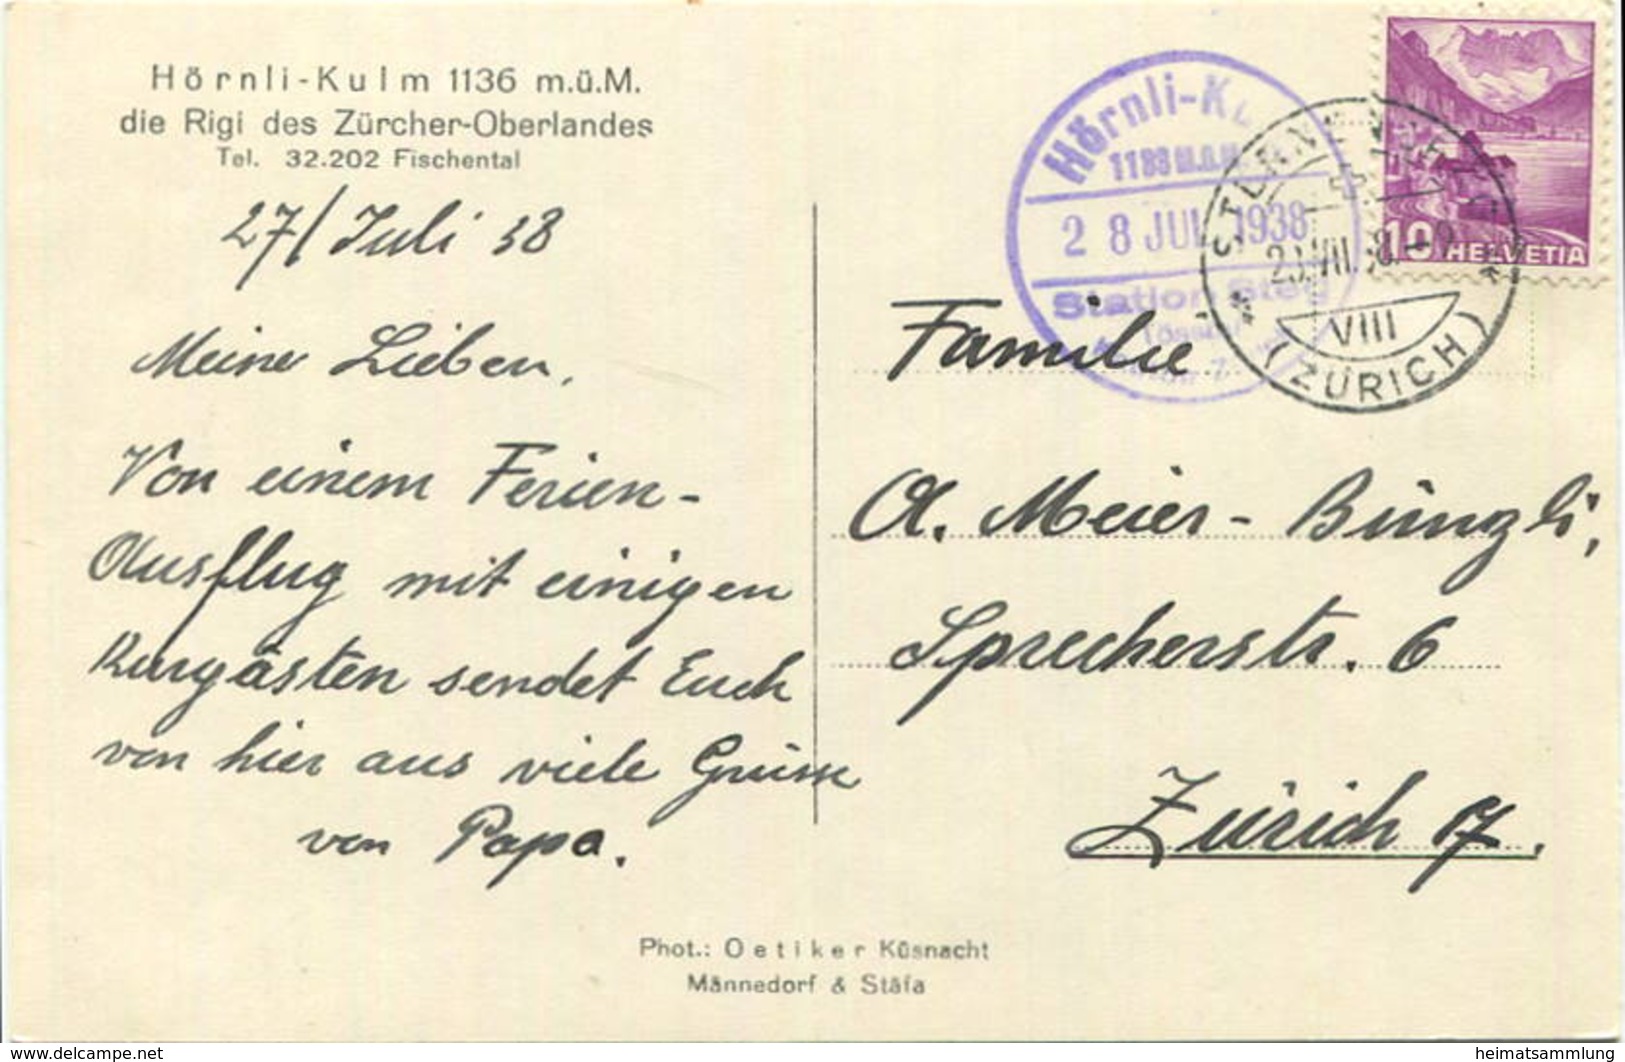 Hörnli-Kulm 1136 m.ü.M.
die Rigi des Zürcher-Oberlandes
Tel. 32.202 Fischental
27/Juli 38
Meine Lieben,
Von einem Ferien-
Ausflug mit einigen
Kurgästen sendet Euch
von hier aus viele Grüsse
von Papa.
Hörnli-Ku
28 JUL 1938
Station Steg
HELVETIA
10
VIII
(ZÜRICH)
Familie
A. Meier-Bünzli,
Sprecherstr. 6
Zürich 7.
Phot.: Oetiker Küsnacht
Männedorf & Stäfa
www.delcampe.net
heimatsammlung